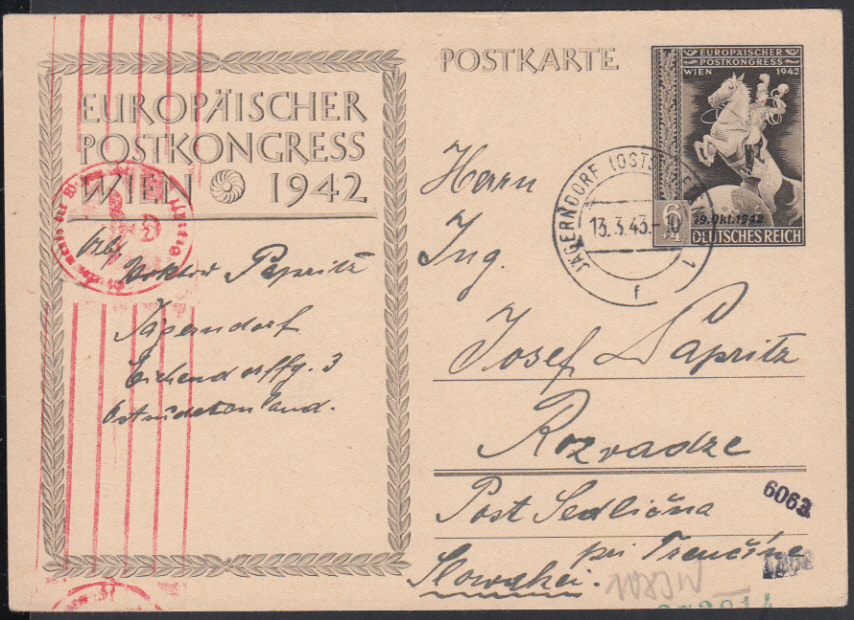 POSTKARTE
EUROPÄISCHER
POSTKONGRESS
WIEN 1942
EUROPÄISCHER
POSTKONGRESS
WIEN 1942
6+4
19.Okt.1942
DEUTSCHES REICH
JÄGERNDORF
13.3.43.-10
f
1
Viktor Papritz
Jägerndorf
Eichendorffg. 3
Ostsudetenland.
Herrn
Ing.
Josef Papritz
Rozvadze
Post Sedlična
pri Trenčíne
Slowakei.
6063